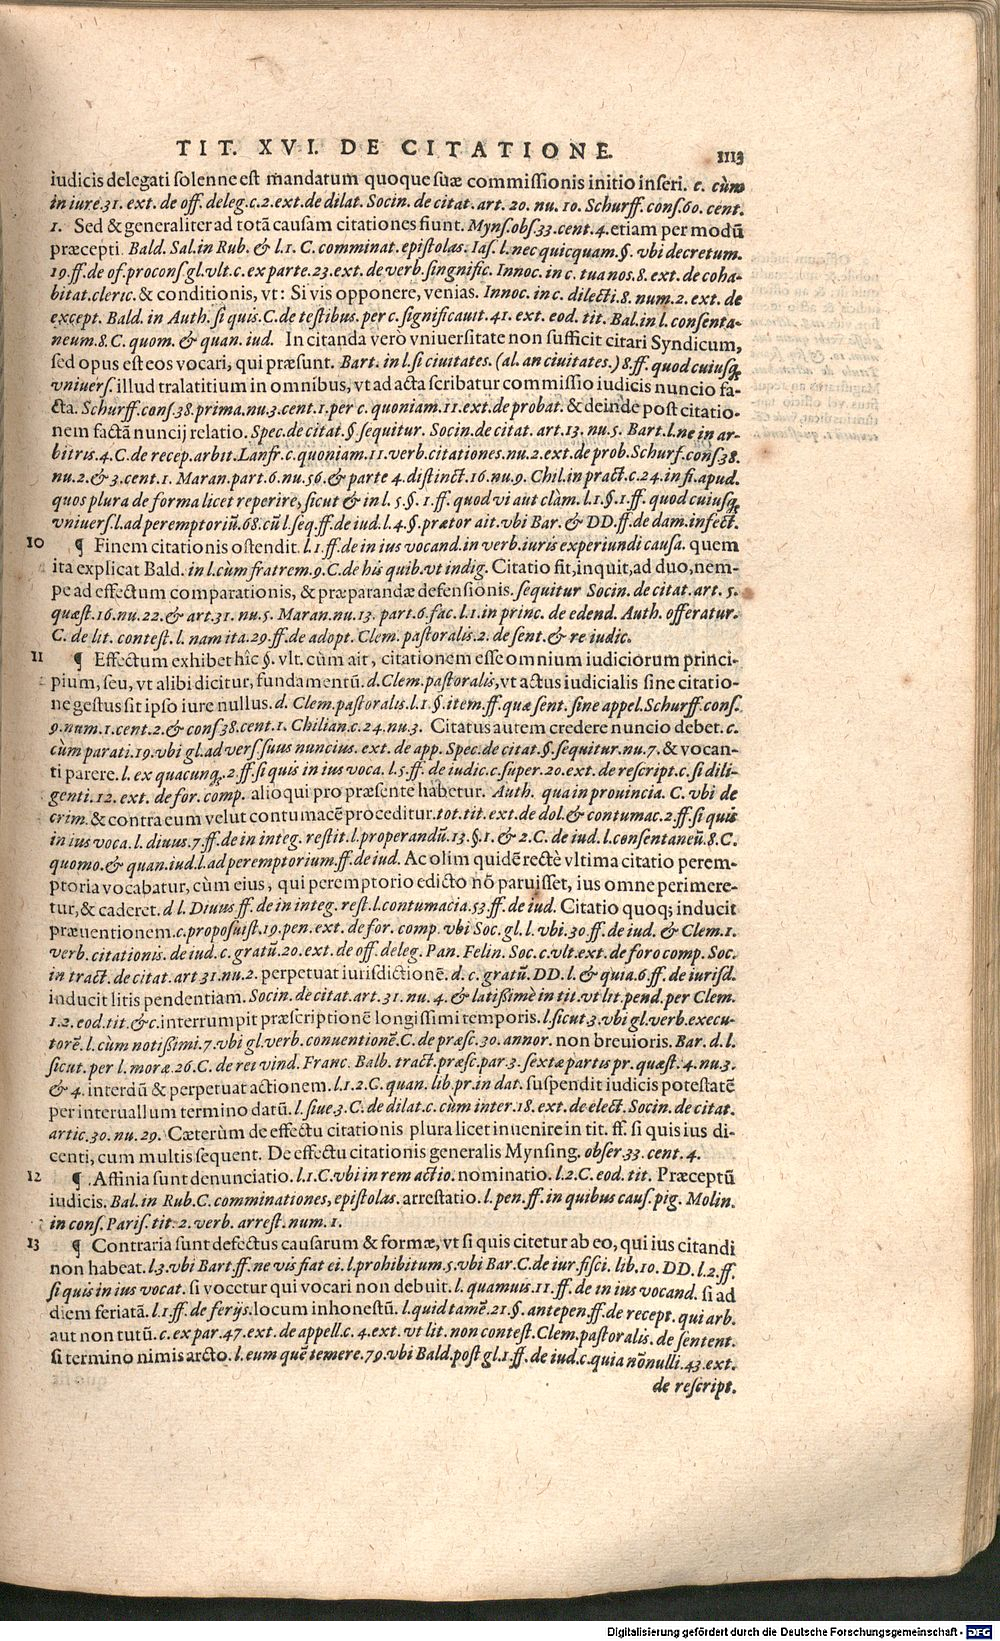 TIT. XVI. DE CITATIONE. 1113
iudicis delegati solenne est mandatum quoque suæ commissionis initio inseri. c. cùm
in iure.31. ext. de off. deleg.c.2.ext.de dilat. Socin. de citat. art. 20. nu. 10. Schurff. cons.60. cent.
1. Sed & generaliter ad totā causam citationes fiunt. Myns.obs.33.cent.4. etiam per modū
præcepti. Bald. Sal.in Rub. & l.1. C. comminat.epistolas. Ias. l. nec quicquam.§. vbi decretum.
19.ff.de of.procons.gl.vlt.c. ex parte.23.ext.de verb.singnific. Innoc. in c. tua nos.8. ext. de coha-
bitat.cleric. & conditionis, vt: Si vis opponere, venias. Innoc. in c. dilecti.8. num.2. ext. de
except. Bald. in Auth. si quis.C.de testibus. per c. significauit.41. ext. eod. tit. Bal.in l. consenta-
neum.8.C. quom. & quan. iud. In citanda verò vniuersitate non sufficit citari Syndicum,
sed opus est eos vocari, qui præsunt. Bart. in l.si ciuitates. (al. an ciuitates.) 8.ff. quod cuiusq;
vniuers. illud tralatitium in omnibus, vt ad acta scribatur commissio iudicis nuncio fa-
cta. Schurff.cons.38.prima.nu.3.cent.1.per c. quoniam.11.ext.de probat. & deinde post citatio-
nem factā nuncij relatio. Spec.de citat.§.sequitur. Socin.de citat. art.13. nu.5. Bart.l.ne in ar-
bitris.4.C.de recep.arbit.Lanfr.c.quoniam.11.verb.citationes.nu.2.ext.de prob.Schurf.cons.38.
nu.2.& 3.cent.1. Maran.part.6.nu.56.& parte 4.distinct.16.nu.9. Chil.in pract.c.24.in fi.apud.
quos plura de forma licet reperire, sicut & in l. 5.§. 1.ff. quod vi aut clàm. l.1.§.1.ff. quod cuiusq;
vniuers.l.ad peremptoriū.68.cū l.seq.ff.de iud.l.4.§.prætor ait.vbi Bar.& DD.ff.de dam.infect.
10 ¶ Finem citationis ostendit. l.1.ff.de in ius vocand.in verb.iuris experiundi causa. quem
ita explicat Bald. in l.cùm fratrem.9.C.de his quib.vt indig. Citatio fit, inquit, ad duo, nem-
pe ad effectum comparationis, & præparandæ defensionis. sequitur Socin. de citat. art. 5.
quæst.16.nu.22.& art.31.nu.5. Maran.nu.13. part.6.fac.l.1.in princ. de edend. Auth. offeratur.
C. de lit. contest. l. nam ita.29.ff.de adopt. Clem. pastoralis.2. de sent.& re iudic.
11 ¶ Effectum exhibet hîc §. vlt. cùm ait, citationem esse omnium iudiciorum princi-
pium, seu, vt alibi dicitur, fundamentū. d.Clem.pastoralis, vt actus iudicialis sine citatio-
ne gestus sit ipso iure nullus. d. Clem.pastoralis.l.1.§.item.ff.quæ sent. sine appel.Schurff.cons.
9.num.1.cent.2.& cons.38.cent.1. Chilian.c.24.nu.3. Citatus autem credere nuncio debet. c.
cùm parati.19.vbi gl.ad vers.suus nuncius. ext. de app. Spec.de citat.§.sequitur.nu.7. & vocan-
ti parere. l. ex quacunq;.2.ff.si quis in ius voca. l.5.ff. de iudic.c.super.20.ext.de rescript.c.si dili-
genti.12. ext. de for. comp. alioqui pro præsente habetur. Auth. qua in prouincia. C. vbi de
crim. & contra eum velut contumacē proceditur. tot.tit.ext.de dol.& contumac.2.ff.si quis
in ius voca.l. diuus.7.ff.de in integ. restit.l.properandū.13.§.1. & 2.C. de iud.l.consentaneū.8.C.
quomo.& quan.iud.l.ad peremptorium.ff.de iud. Ac olim quidē rectè vltima citatio perem-
ptoria vocabatur, cùm eius, qui peremptorio edicto nō paruisset, ius omne perimere-
tur, & caderet. d l. Diuus ff. de in integ. rest.l.contumacia.53.ff.de iud. Citatio quoq; inducit
præuentionem. c.proposuist.19.pen.ext.de for. comp. vbi Soc.gl. l. vbi.30.ff.de iud. & Clem.1.
verb. citationis.de iud.c.gratū.20.ext.de off.deleg. Pan. Felin. Soc.c.vlt.ext.de foro comp. Soc.
in tract.de citat.art 31.nu.2. perpetuat iurisdictionē. d. c.gratū. DD. l. & quia.6.ff.de iurisd.
inducit litis pendentiam. Socin. de citat.art. 31. nu. 4. & latißimè in tit.vt lit.pend.per Clem.
1.2. eod.tit.&c. interrumpit præscriptionē longissimi temporis. l.sicut 3.vbi gl.verb.execu-
torē.l.cùm notißimi.7.vbi gl.verb. conuentionē.C.de præsc.30. annor. non breuioris. Bar. d.l.
sicut. per l. moræ.26.C. de rei vind. Franc. Balb. tract.præsc.par.3. sextæ partis pr. quæst.4.nu.3.
& 4. interdū & perpetuat actionem. l.1.2.C. quan. lib.pr.in dat. suspendit iudicis potestatē
per interuallum termino datū. l.siue.3.C. de dilat.c. cùm inter.18. ext.de elect. Socin. de citat.
artic.30. nu.29. Cæterùm de effectu citationis plura licet inuenire in tit. ff. si quis ius di-
centi, cum multis sequent. De effectu citationis generalis Mynsing. obser.33.cent. 4.
12 ¶ Affinia sunt denunciatio. l.1.C.vbi in rem actio. nominatio. l.2.C. eod. tit. Præceptū
iudicis. Bal. in Rub.C. comminationes, epistolas. arrestatio. l. pen.ff.in quibus caus.pig. Molin.
in cons. Paris. tit. 2. verb. arrest. num. 1.
13 ¶ Contraria sunt defectus causarum & formæ, vt si quis citetur ab eo, qui ius citandi
non habeat. l.3.vbi Bart.ff.ne vis fiat ei. l.prohibitum.5.vbi Bar.C.de iur.fisci. lib.10. DD.l.2.ff.
si quis in ius vocat. si vocetur qui vocari non debuit. l. quamuis.11.ff. de in ius vocand. si ad
diem feriatā. l.1.ff.de ferijs. locum inhonestū. l.quid tamē.21.§. antepen.ff.de recept. qui arb.
aut non tutū. c. ex par.47.ext.de appell.c. 4.ext. vt lit. non contest.Clem.pastoralis. de sentent.
si termino nimis arcto. l. eum quē temere.79.vbi Bald.post gl.1.ff. de iud.c.quia nōnulli.43.ext.
de rescript.
Digitalisierung gefördert durch die Deutsche Forschungsgemeinschaft - DFG